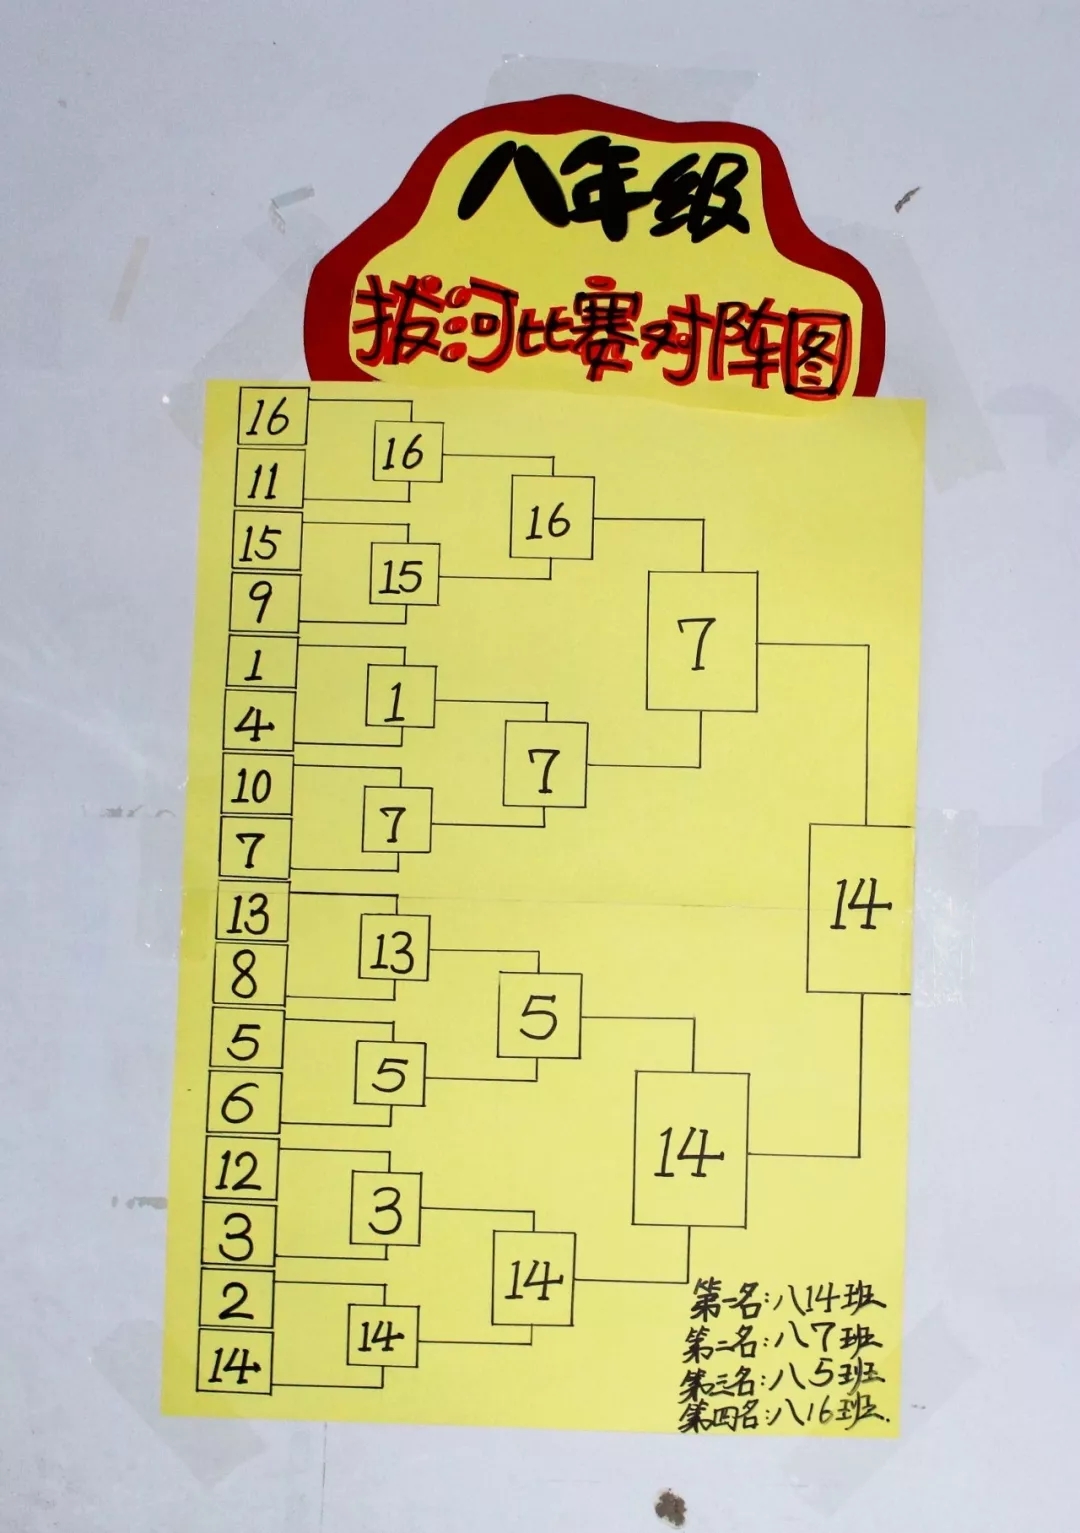 八年级
拔河比赛对阵图
16
11
15
9
1
4
10
7
13
8
5
6
12
3
2
14
16
15
1
7
13
5
3
14
16
7
5
14
7
14
14
第一名:八14班
第二名:八7班
第三名:八5班
第四名:八16班.